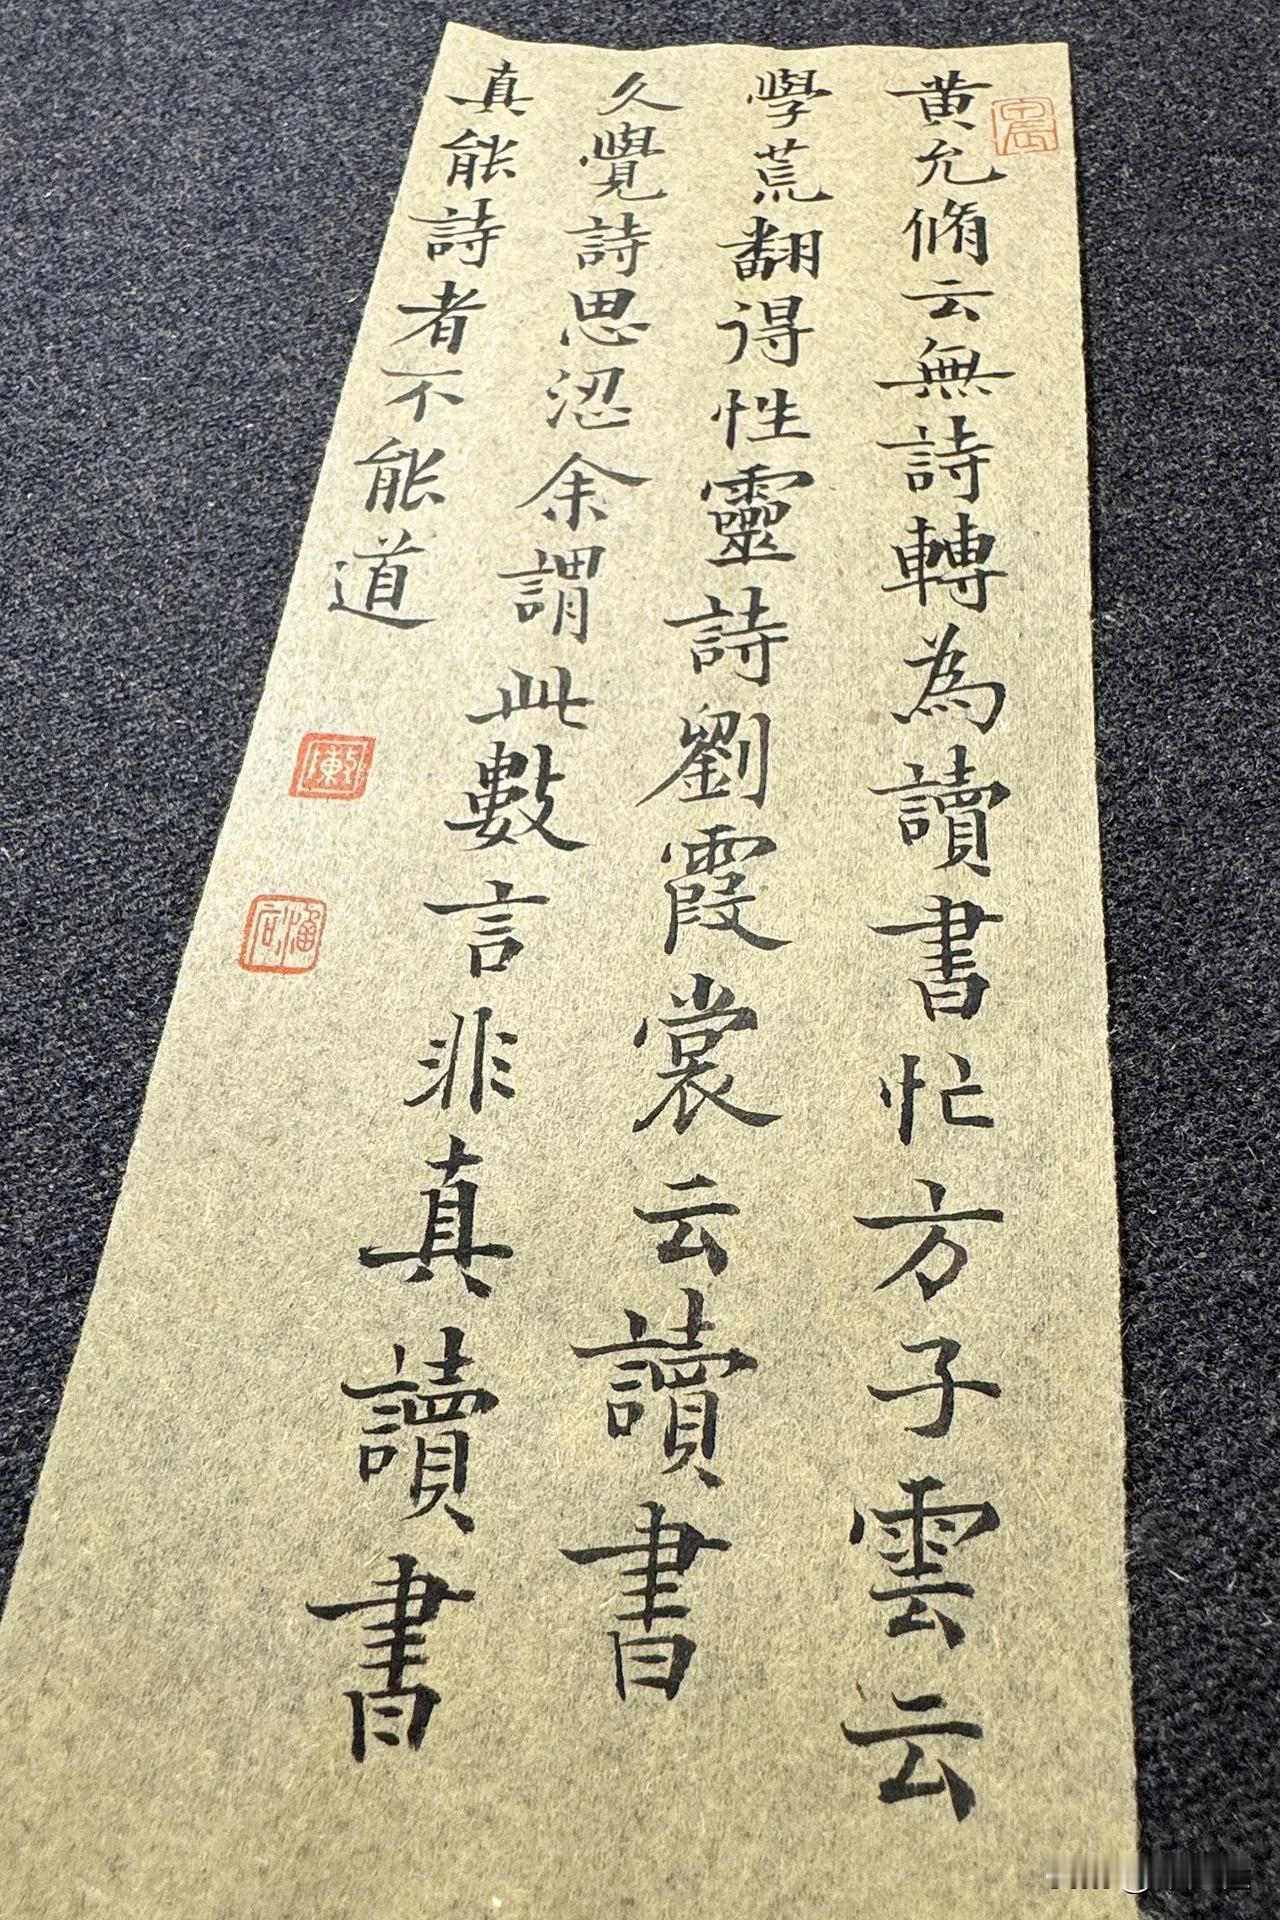 黄允脩云無詩轉為讀書忙方子雲云
學荒翻得性靈詩劉霞裳云讀書
久覺詩思澀余謂此數言非真讀書
真能詩者不能道